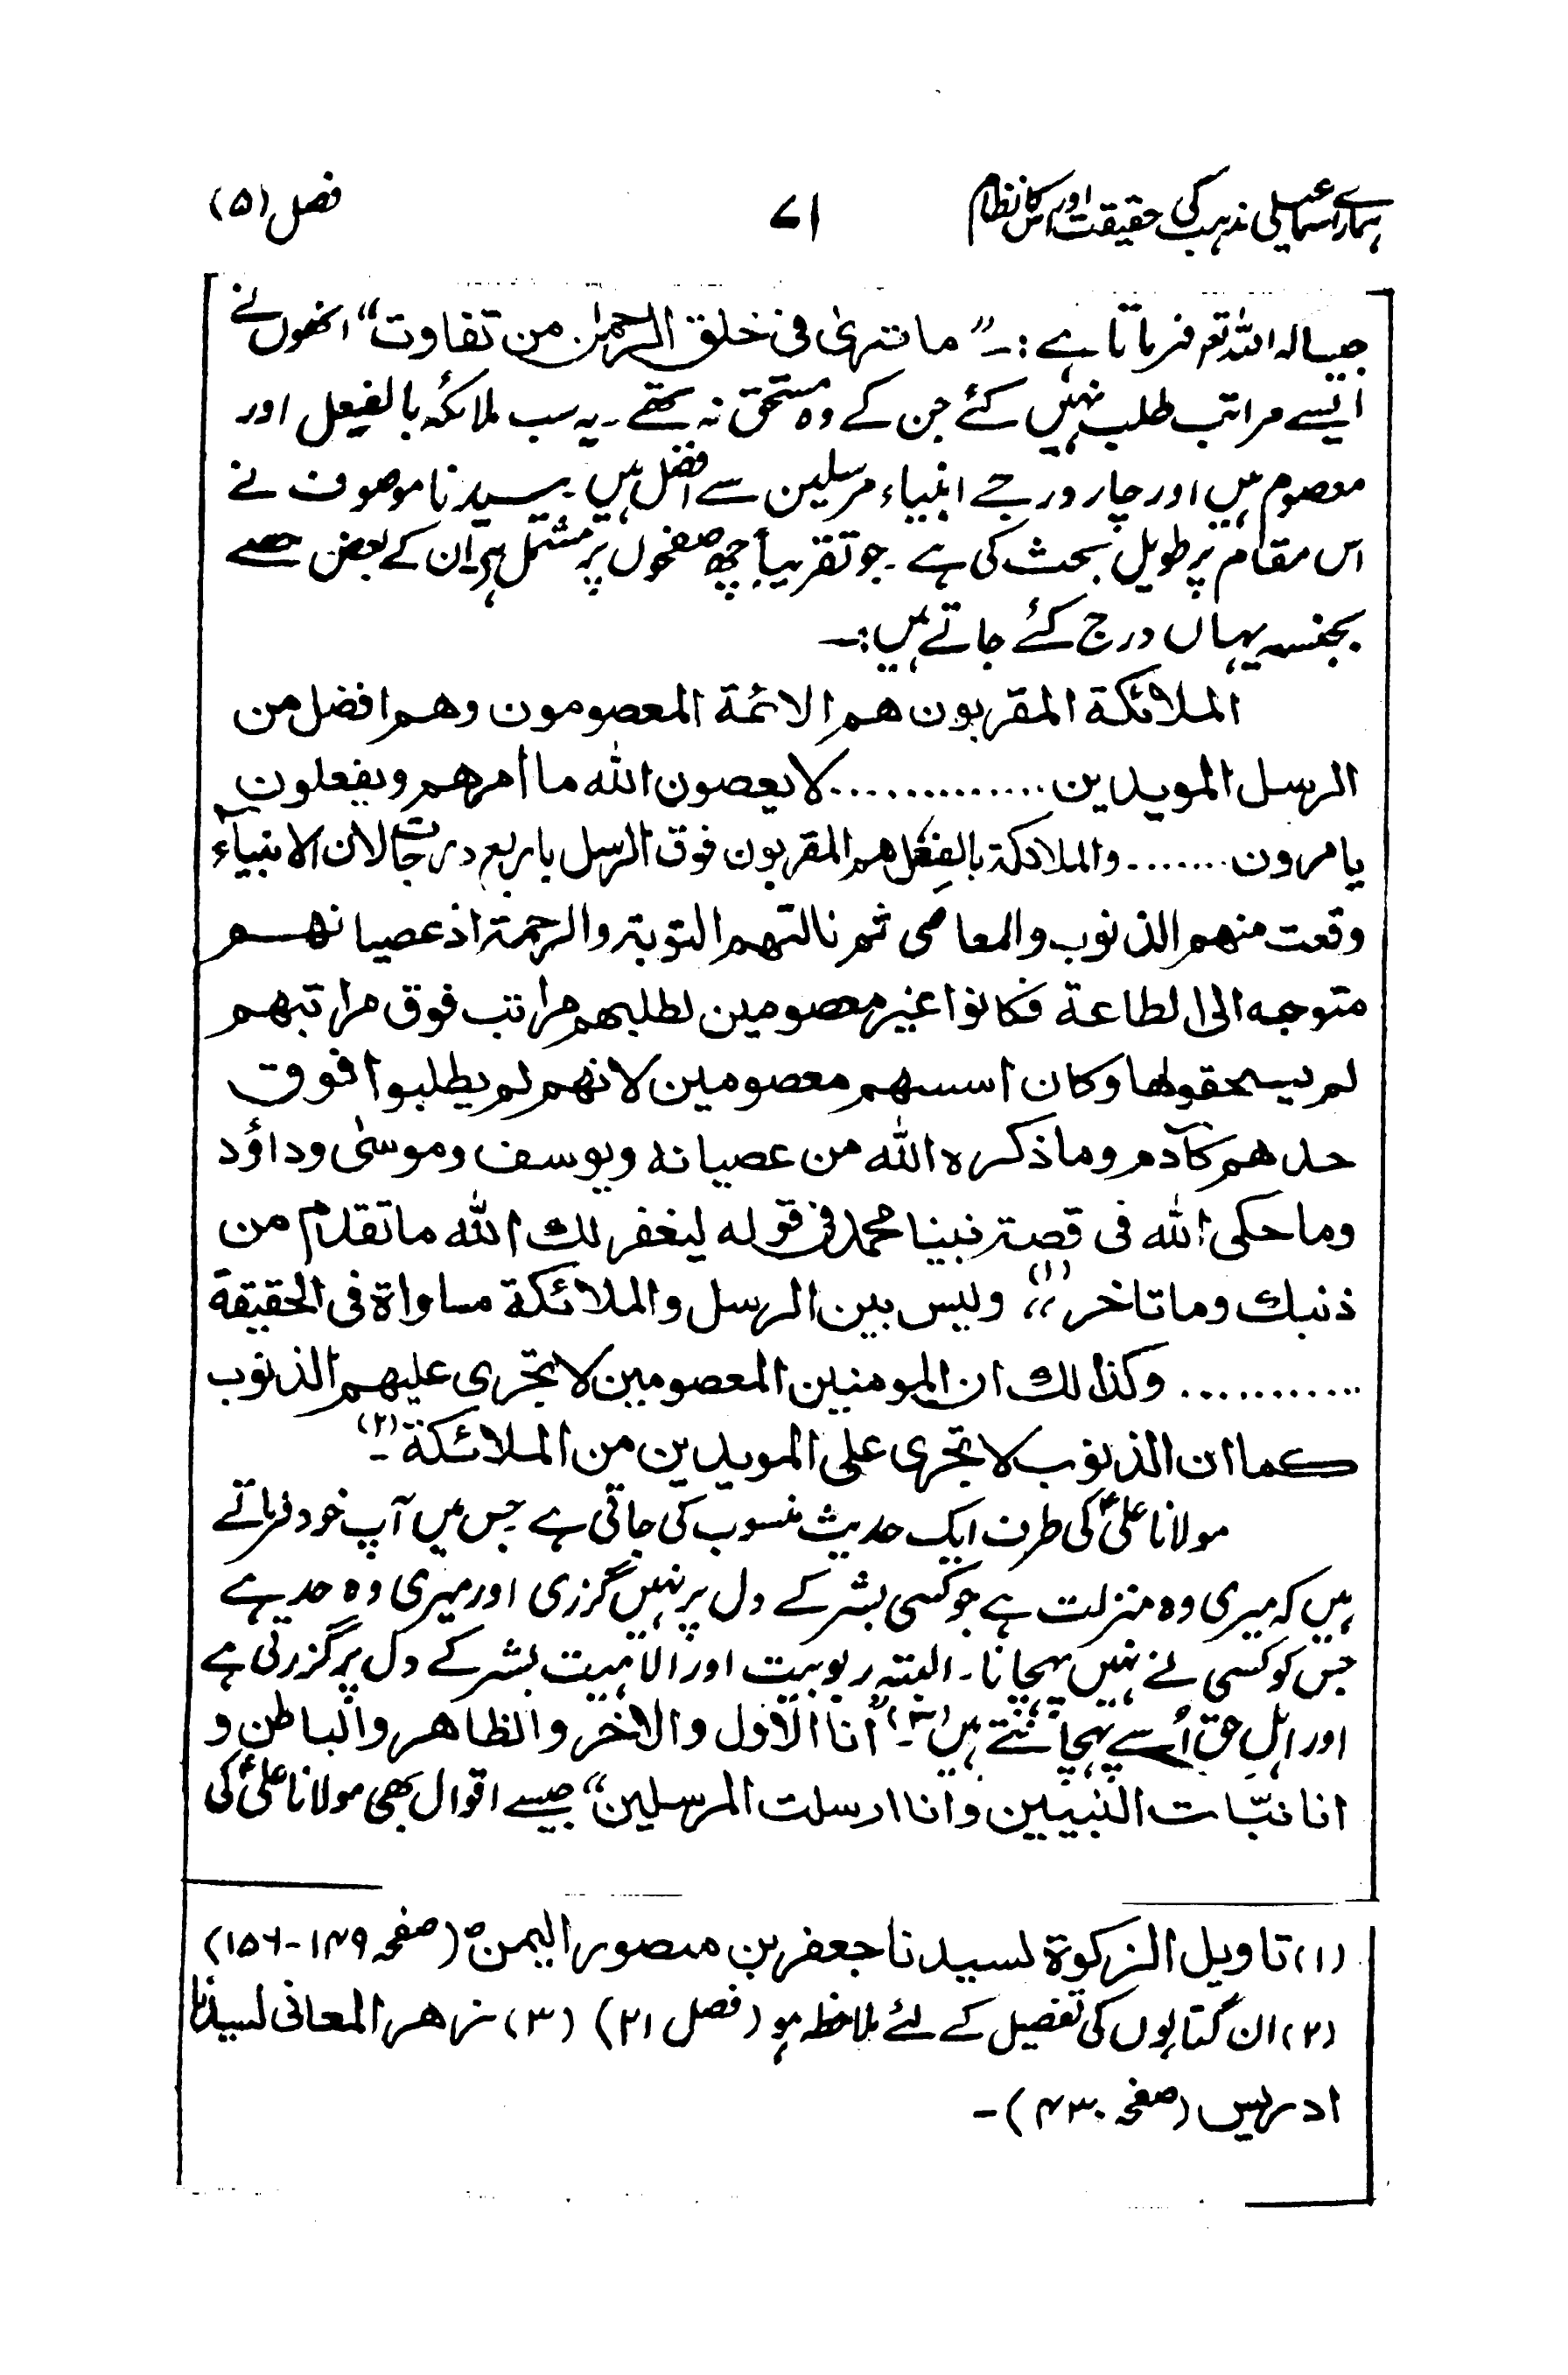 ہمارے اسماعیلی مذہب کی حقیقت اور اس کا نظام ۷۱ فصل (۵)
جیسا کہ اللہ تعہ فرماتا ہے :۔ "ما ترىٰ فی خلق الرحمٰن من تفاوت" انھوں نے
ایسے مراتب طلب نہیں کئے جن کے وہ مستحق نہ تھے۔ یہ سب ملائکہ بالفعل اور
معصوم ہیں اور چار درجے انبیاء مرسلین سے افضل ہیں۔ سیدنا موصوف نے
اس مقام پر طویل بحث کی ہے۔ جو تقریباً چھ صفحوں پر مشتمل ہے۔ ان کے بعض حصے
بجنسہ یہاں درج کئے جاتے ہیں:۔
الملائكة المقربون هم الائمة المعصومون وهم افضل من
الرسل المويدين ............. لا يعصون الله ما امرهم ويفعلون
يامرون ....... والملائكة بالفعل هم المقربون فوق الرسل باربع درجات لان الانبياء
وقعت منهم الذنوب والمعاصى ثم نالتهم التوبة والرحمة اذ عصيانهم
متوجه الى الطاعة فكانوا غير معصومين لطلبهم مراتب فوق مراتبهم
لم يستحقوها وكان اسسهم معصومين لانهم لم يطلبوا فوق
حدهم كآدم وما ذكره الله من عصيانه ويوسف وموسىٰ وداؤد
وما حكى الله فى قصة نبينا محمد فى قوله ليغفر لك الله ما تقدم من
ذنبك وما تاخر"(۱) وليس بين الرسل والملائكة مساواة فى الحقيقة
........... وكذالك ان المومنين المعصومين لا تجرى عليهم الذنوب
كما ان الذنوب لا تجرى على المويدين من الملائكة(۲)۔
مولانا علیؑ کی طرف ایک حدیث منسوب کی جاتی ہے جس میں آپ خود فرماتے
ہیں کہ میری وہ منزلت ہے جو کسی بشر کے دل پر نہیں گزری اور میری وہ حد ہے
جس کو کسی نے نہیں پہچانا۔ البتہ ربوبیت اور الاہیت بشر کے دل پر گزرتی ہے
اور اہل حق اُسے پہچانتے ہیں(۳)۔ "انا الاول والاخر والظاهر والباطن و
انا نبّات النبيين وانا ارسلت المرسلين" جیسے اقوال بھی مولانا علیؑ کی
(۱) تاویل الزکوة لسیدنا جعفر بن منصور الیمنؓ (صفحہ ۱۴۹-۱۵۶)
(۲) ان کتابوں کی تفصیل کے لئے ملاحظہ ہو (فصل ۲۱) (۳) زهر المعانی لسیدنا
ادریس (صفحہ ۴۳۰)۔